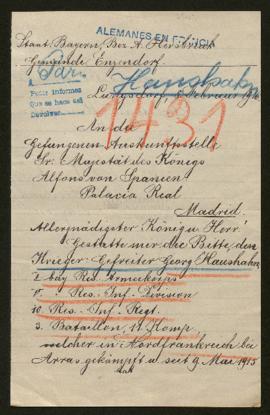 ALEMANES EN FRANCIA
Staat Bayern, Bez. A. Hersbruck
Gemeinde Enzendorf.
Par.
Haushahn
A
Pedir informes
Que se hace así
Devolver
Februar
1431
An die
Gefangenen Auskunftsstelle
Sr. Majestät des Königs
Alfons von Spanien
Palacia Real
Madrid
Allergnädigster König u. Herr!
Gestatte mir die Bitte, den
Krieger Gefreiter Georg Haushahn,
I. bay. Res. Armeekorps
V. " Res. Inf. Division
10. Res. Inf. Regt.
3. Bataillon, 11. Komp.
welcher in Nordfrankreich bei
Arras gekämpft u. seit 9. Mai 1915